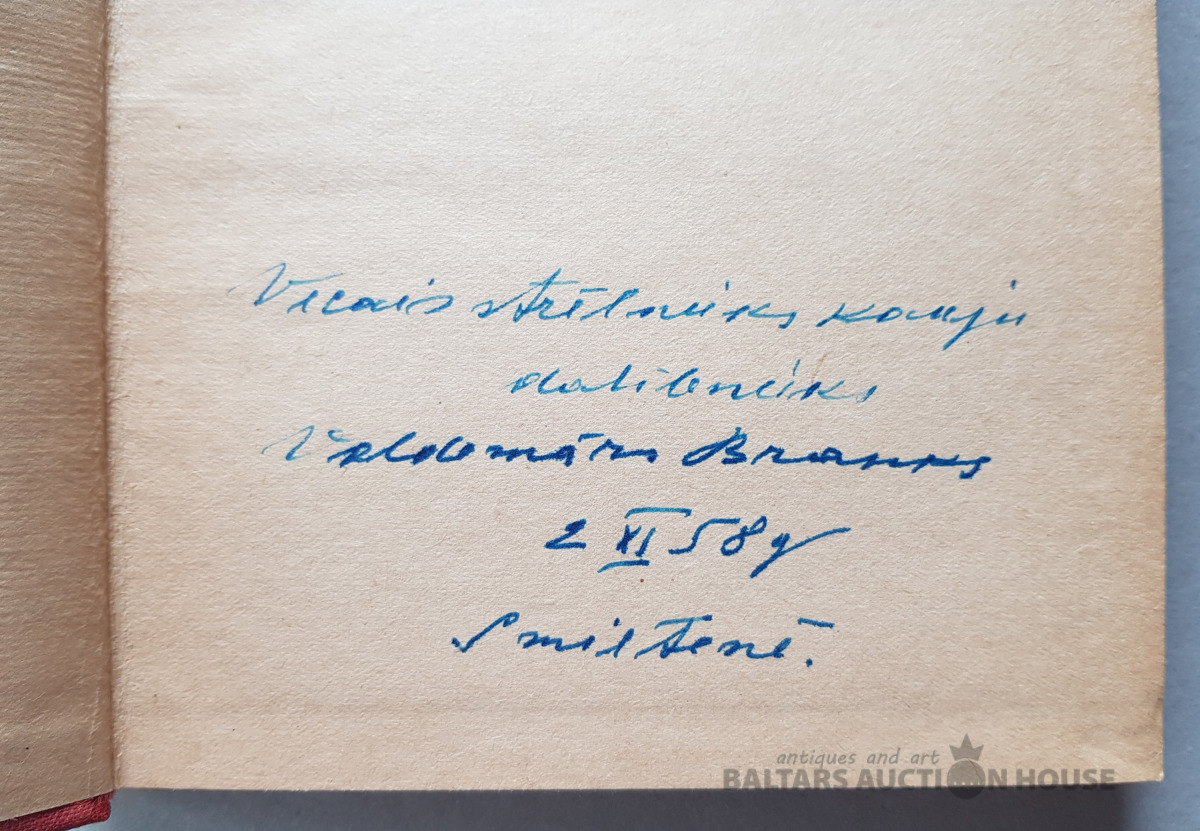 Vecais strēlnieks kauju
dalībnieks
Valdemārs Branks
2 XI 58 g
Smiltenē.
antiques and art
BALTARS AUCTION HOUSE